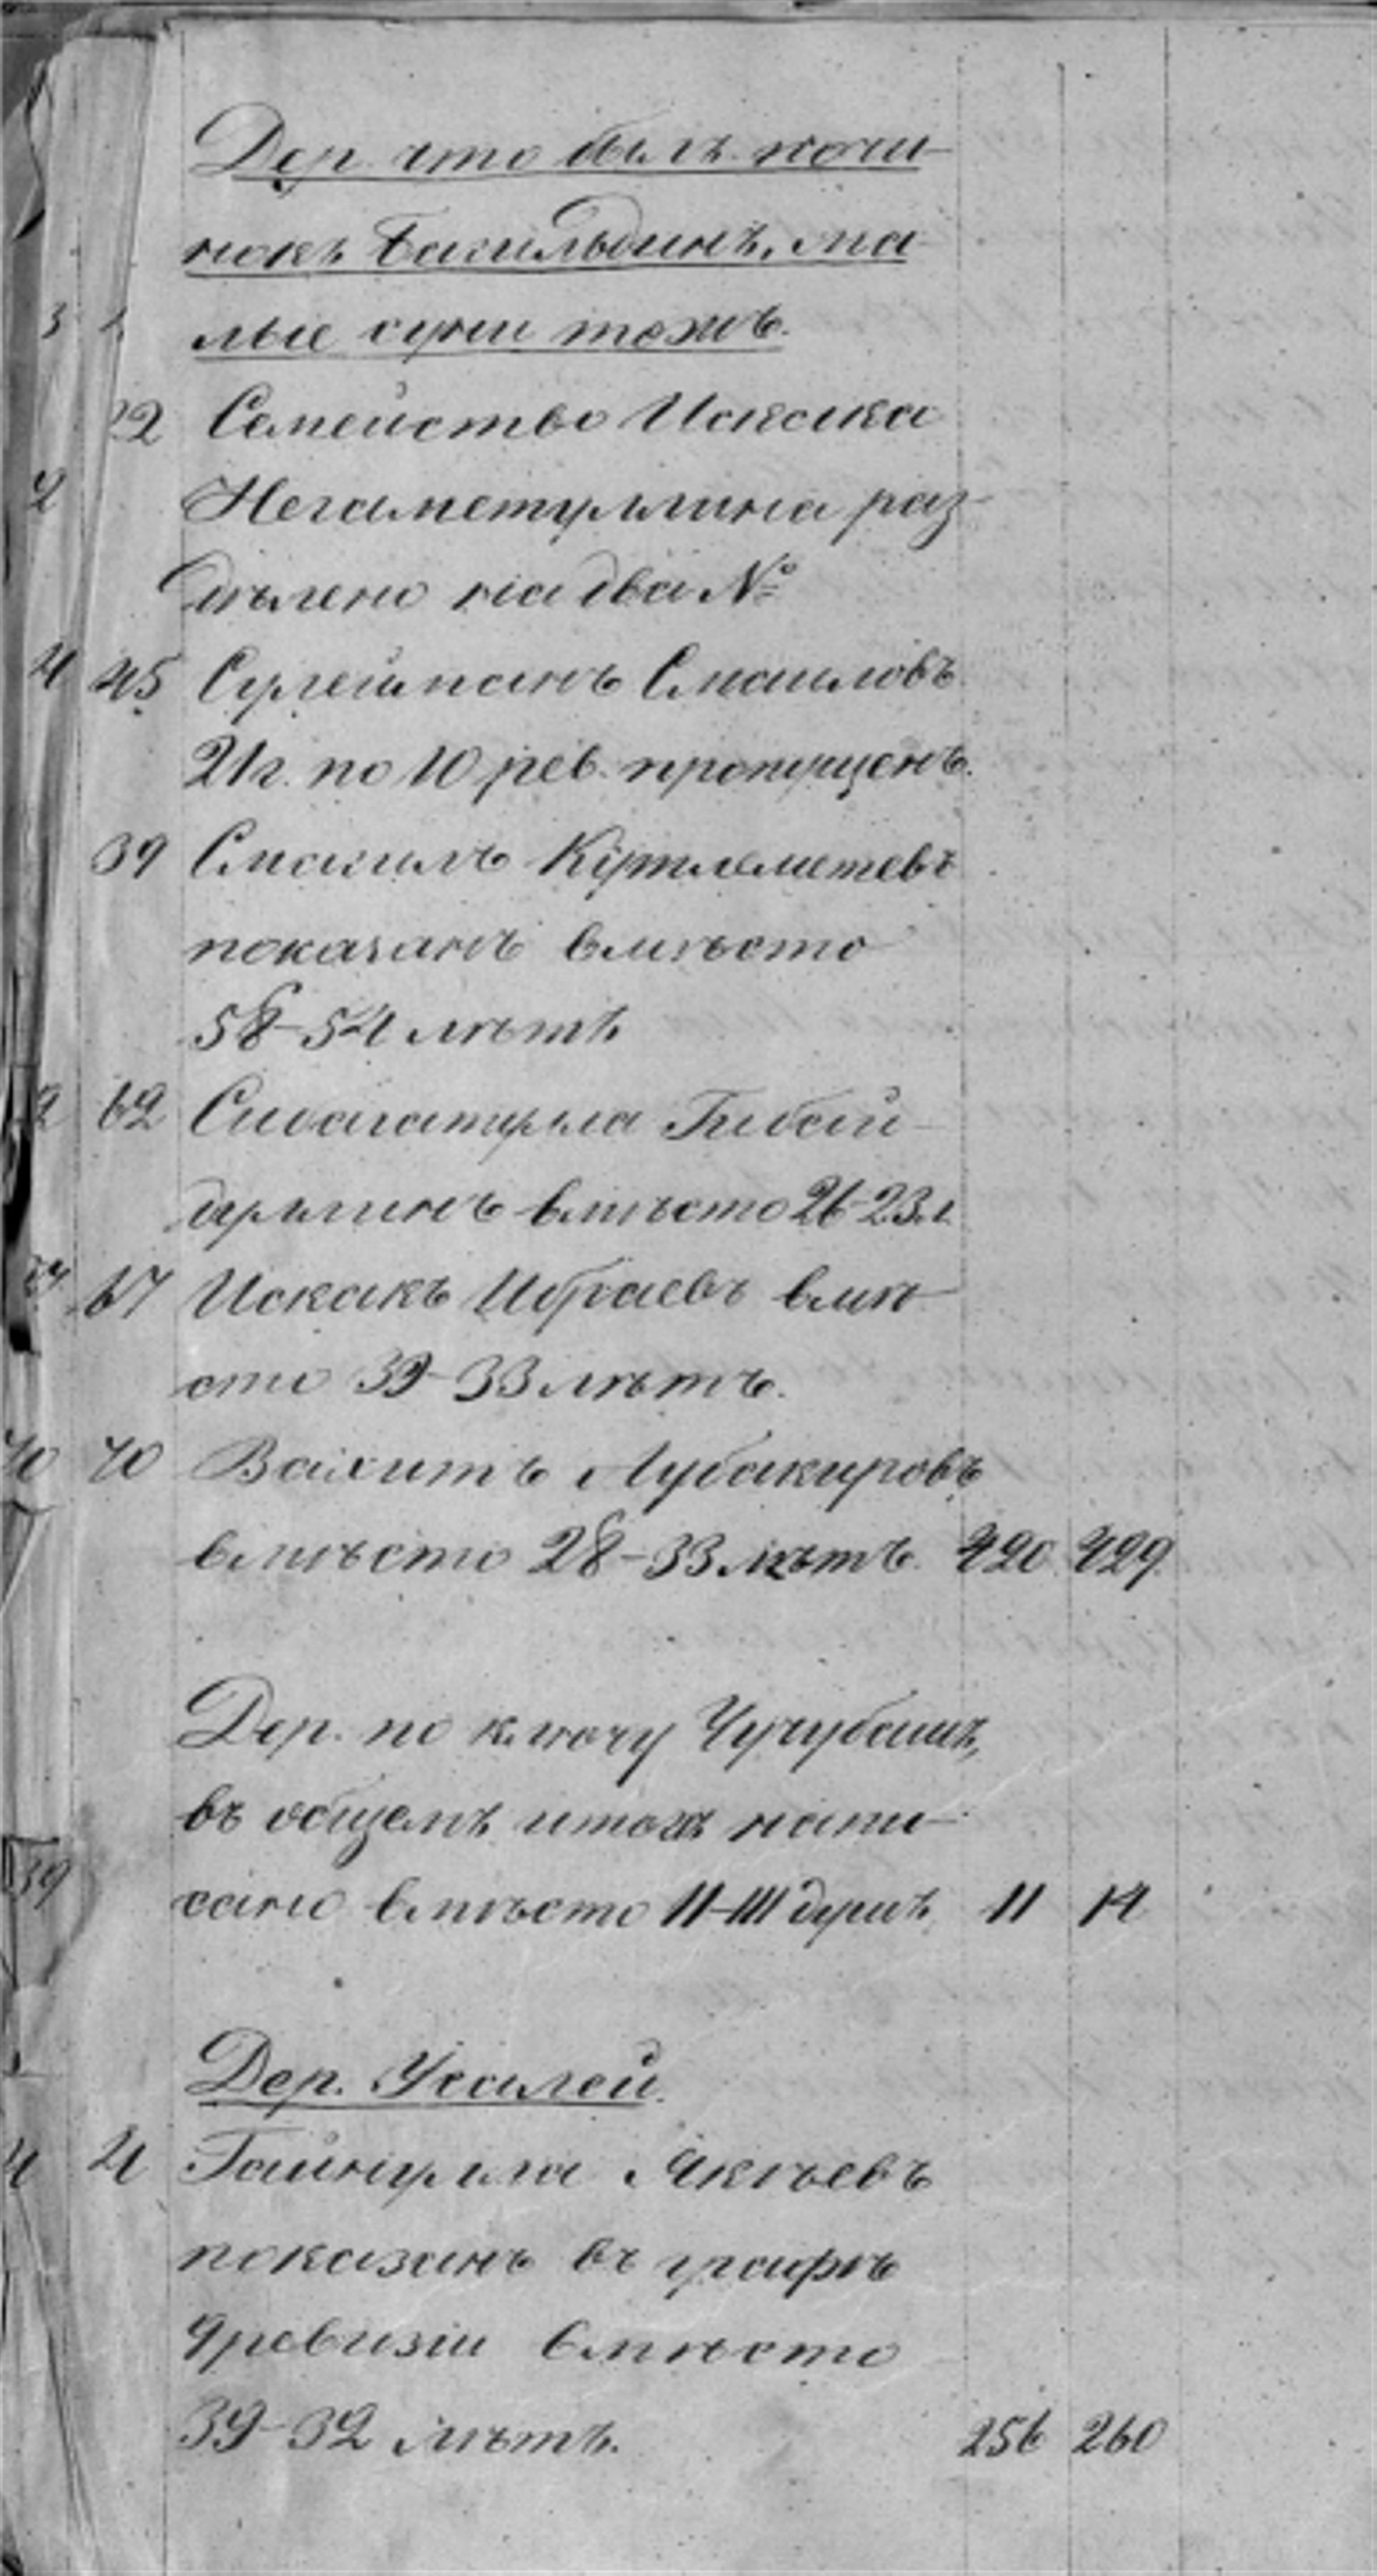 Дер. что былъ почи-
нокъ Бакильдинъ, ма
лые суни тожъ.
22 Семейство Искака
Негаметуллина раз-
дѣлено на два №
4 45 Сулейманъ Смаиловъ
21 г. по 10 рев. пропущенъ.
39 Смаилъ Куртмеметевъ
показанъ вмѣсто
58-54 лѣтъ
62 Сибагатулла Губай-
дуллинъ вмѣсто 26-23 л
67 Искакъ Ибраевъ вмѣ-
сто 39-33 лѣтъ.
70 70 Вахитъ Абубакировъ
вмѣсто 28-33 лѣтъ. 420 429
Дер. по ключу Чучубашъ,
въ общемъ итогѣ напи-
39 сано вмѣсто 11-111 душъ 11 14
Дер. Усалей.
4 4 Гайнулла Якѣевъ
показанъ въ графѣ
9 ревизіи вмѣсто
39-32 лѣтъ. 256 260